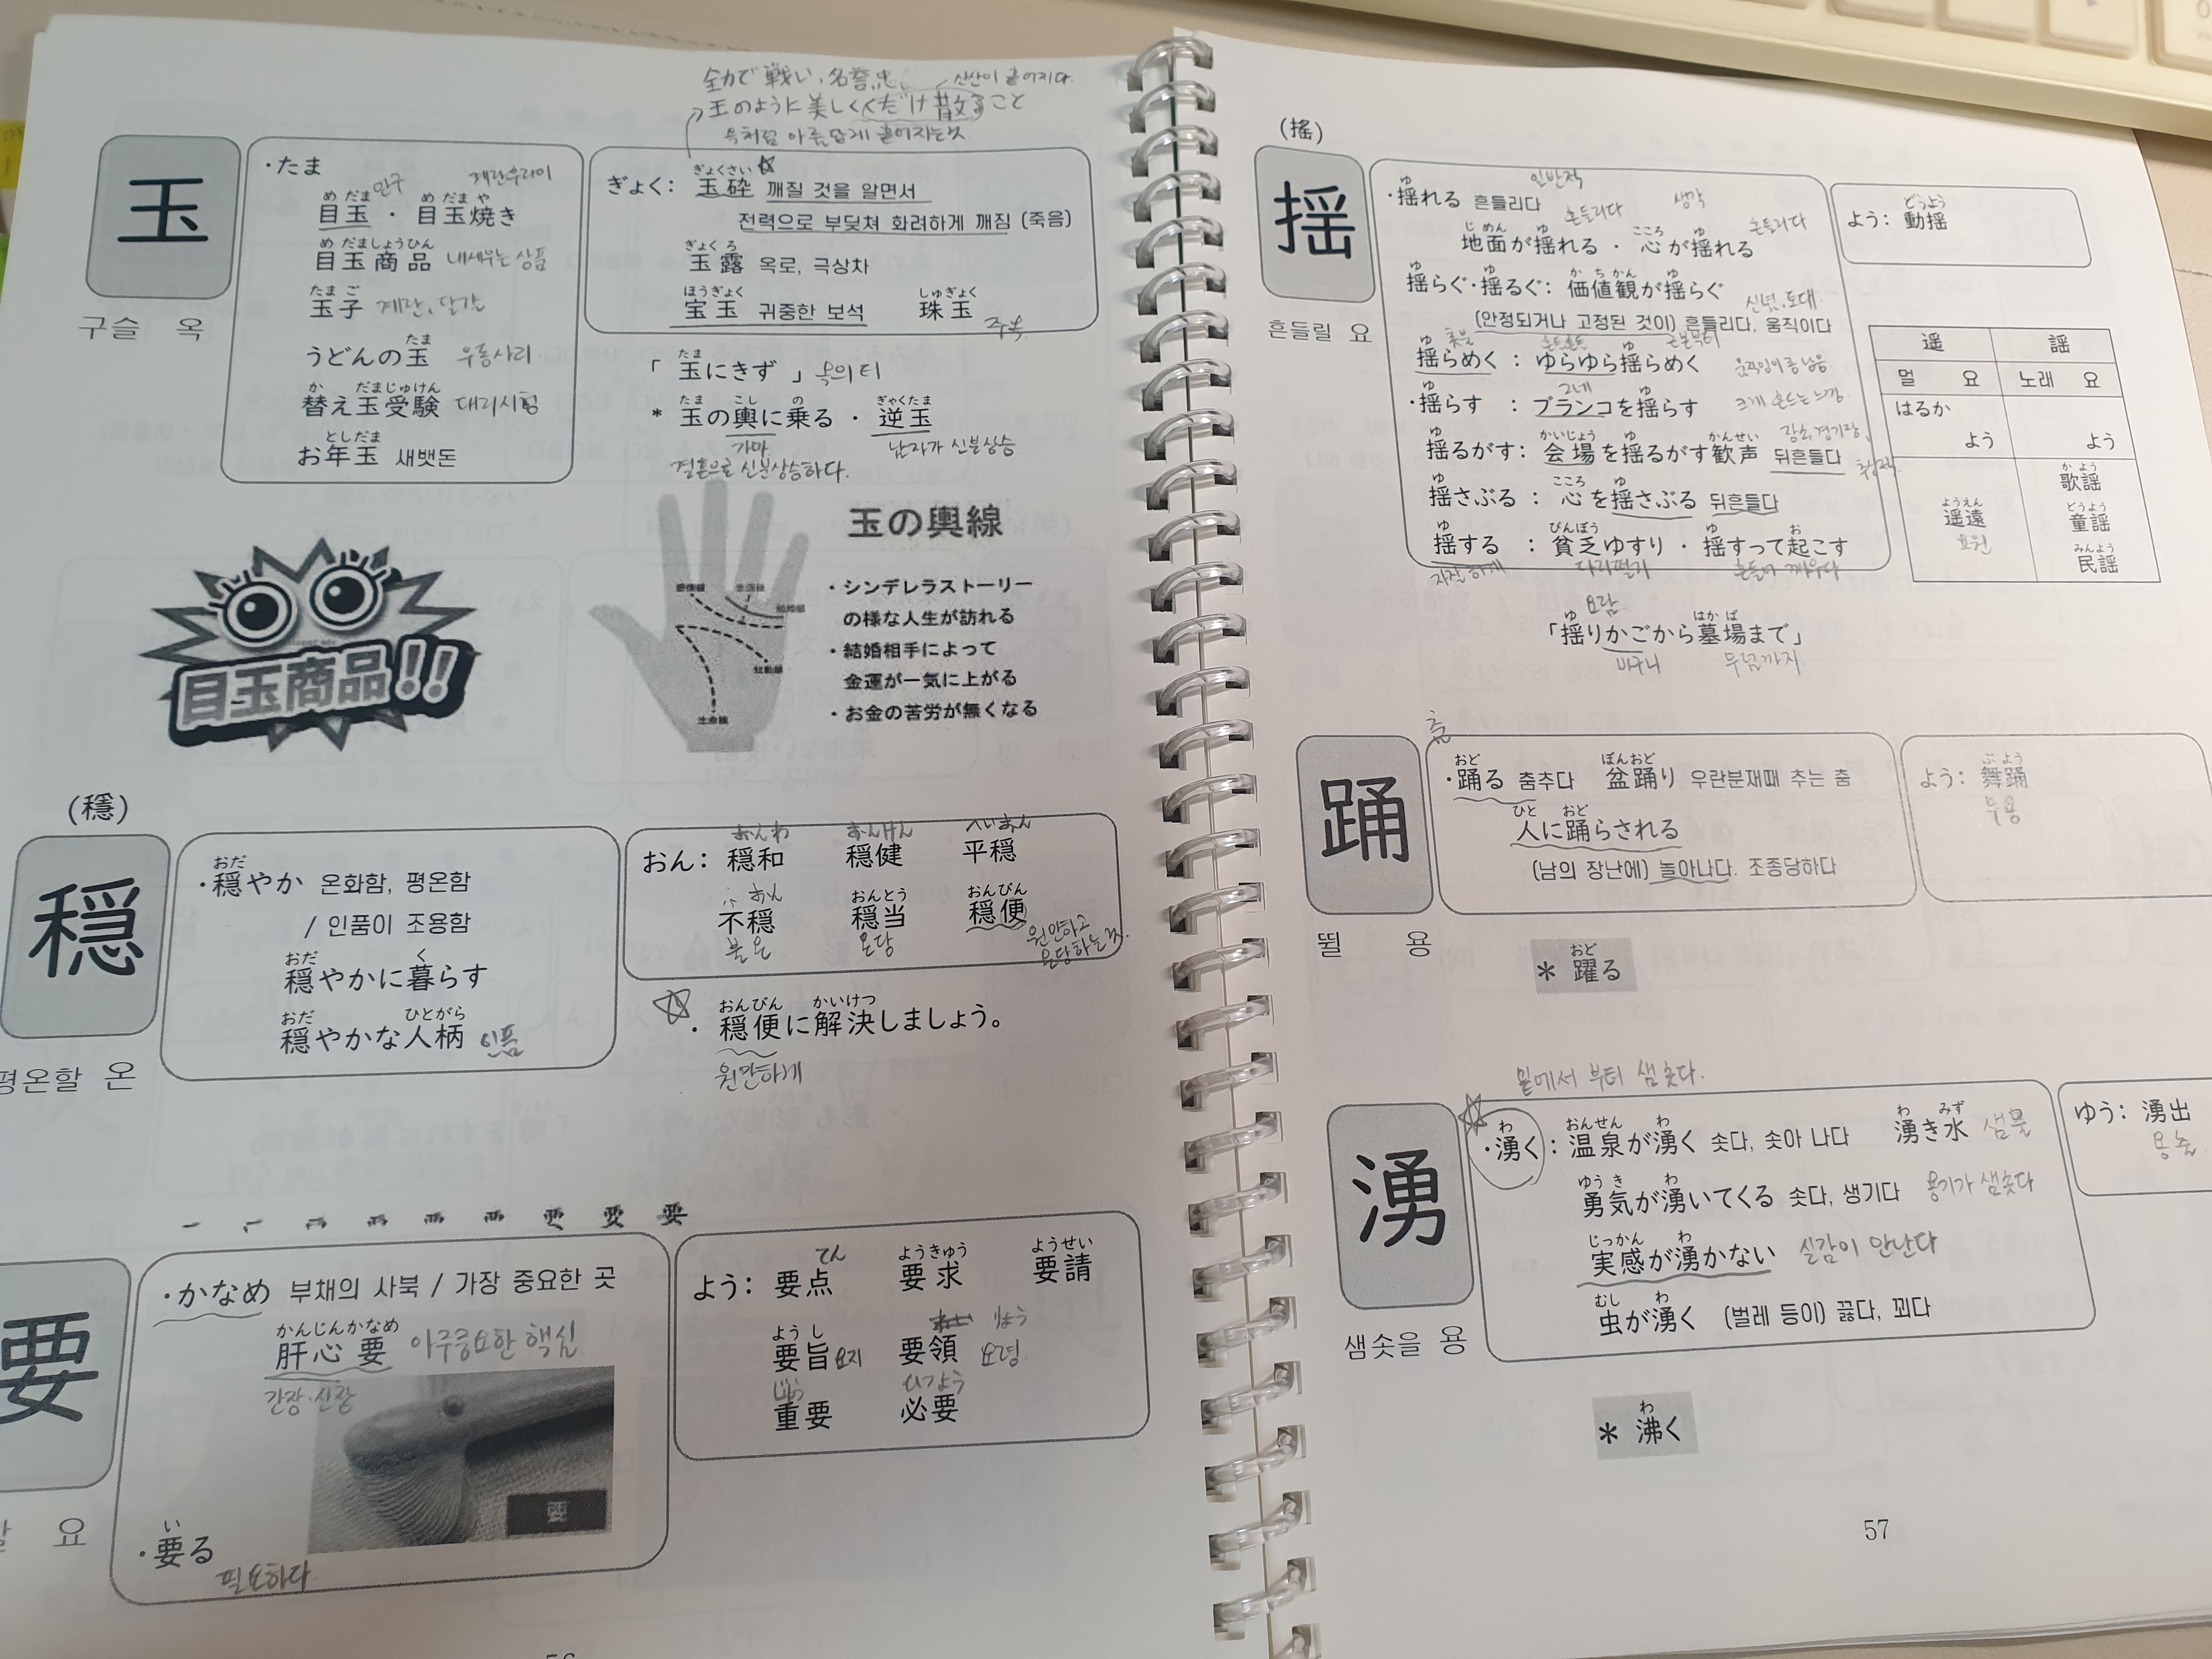 全力で戦い、名誉、忠、
신산이 흩어지다.
玉のように美しくくだけ散ること
옥처럼 아름답게 흩어지는것
玉
구슬 옥
・たま
안구 계란후라이
め だま め だま や
目玉・目玉焼き
め だましょうひん
目玉商品 내세우는 상품
たま ご
玉子 계란, 달걀
たま
うどんの玉 우동사리
か だまじゅけん
替え玉受験 대리시험
としだま
お年玉 새뱃돈
ぎょくさい
ぎょく: 玉砕 깨질 것을 알면서
전력으로 부딪쳐 화려하게 깨짐 (죽음)
ぎょく ろ
玉露 옥로, 극상차
ほうぎょく しゅぎょく
宝玉 귀중한 보석 珠玉
주옥
たま
「玉にきず」 옥의 티
たま こし の ぎゃくたま
* 玉の輿に乗る・逆玉
가마 남자가 신분상승
결혼으로 신분상승하다.
目玉商品!!
玉の輿線
・シンデレラストーリー
の様な人生が訪れる
・結婚相手によって
金運が一気に上がる
・お金の苦労が無くなる
生命線
(穩)
穏
평온할 온
おだ
・穏やか 온화함, 평온함
/ 인품이 조용함
おだ く
穏やかに暮らす
おだ ひとがら
穏やかな人柄 인품
おんわ おんけん へいおん
おん: 穏和 穏健 平穏
ふ おん おんとう おんびん
不穏 穏当 穏便
불온 온당 원만하고
온당하는것.
おんびん かいけつ
・穏便に解決しましょう。
원만하게
要
요
・かなめ 부채의 사북 / 가장 중요한 곳
かんじんかなめ
肝心要 아주중요한 핵심
간장·심장
要
い
・要る
필요하다
てん ようきゅう ようせい
よう: 要点 要求 要請
よう し りょう
要旨 요지 要領 요령
じゅう ひつよう
重要 必要
(搖)
揺
흔들릴 요
일반적
ゆ
・揺れる 흔들리다 흔들리다 생각 흔들리다
じ めん ゆ こころ ゆ
地面が揺れる・心が揺れる
ゆ ゆ か ち かん ゆ
揺らぐ・揺るぐ: 価値観が揺らぐ 신념, 토대
(안정되거나 고정된 것이) 흔들리다, 움직이다
ゆ 촛불 흔들흔들 ゆ 근본부터
揺らめく: ゆらゆら揺らめく
ゆ 그네 ゆ
・揺らす: ブランコを揺らす 크게 흔드는 느낌.
ゆ かいじょう ゆ かんせい
揺るがす: 会場を揺るがす歓声 뒤흔들다
ゆ こころ ゆ
揺さぶる: 心を揺さぶる 뒤흔들다
ゆ びんぼう ゆ お
揺する: 貧乏ゆすり・揺すって起こす
다리떨기 흔들어 깨우다
요람
ゆ はか ば
「揺りかごから墓場まで」
바구니 무덤까지
どうよう
よう: 動揺
遥 謡
멀 요 노래 요
はるか
よう よう
か よう
歌謡
ようえん どうよう
遥遠 童謡
요원 みんよう
民謡
踊
뛸 용
춤
おど ぼんおど
・踊る 춤추다 盆踊り 우란분재때 추는 춤
ひと おど
人に踊らされる
(남의 장난에) 놀아나다. 조종당하다
ぶ よう
よう: 舞踊
무용
おど
* 躍る
밑에서 부터 샘솟다.
湧
샘솟을 용
わ おんせん わ わ みず
・湧く: 温泉が湧く 솟다, 솟아 나다 湧き水 샘물
ゆう き わ
勇気が湧いてくる 솟다, 생기다 용기가 샘솟다
じっかん わ
実感が湧かない 실감이 안난다
むし わ
虫が湧く (벌레 등이) 끓다, 꾀다
ゆう: 湧出
용출
わ
* 沸く
57